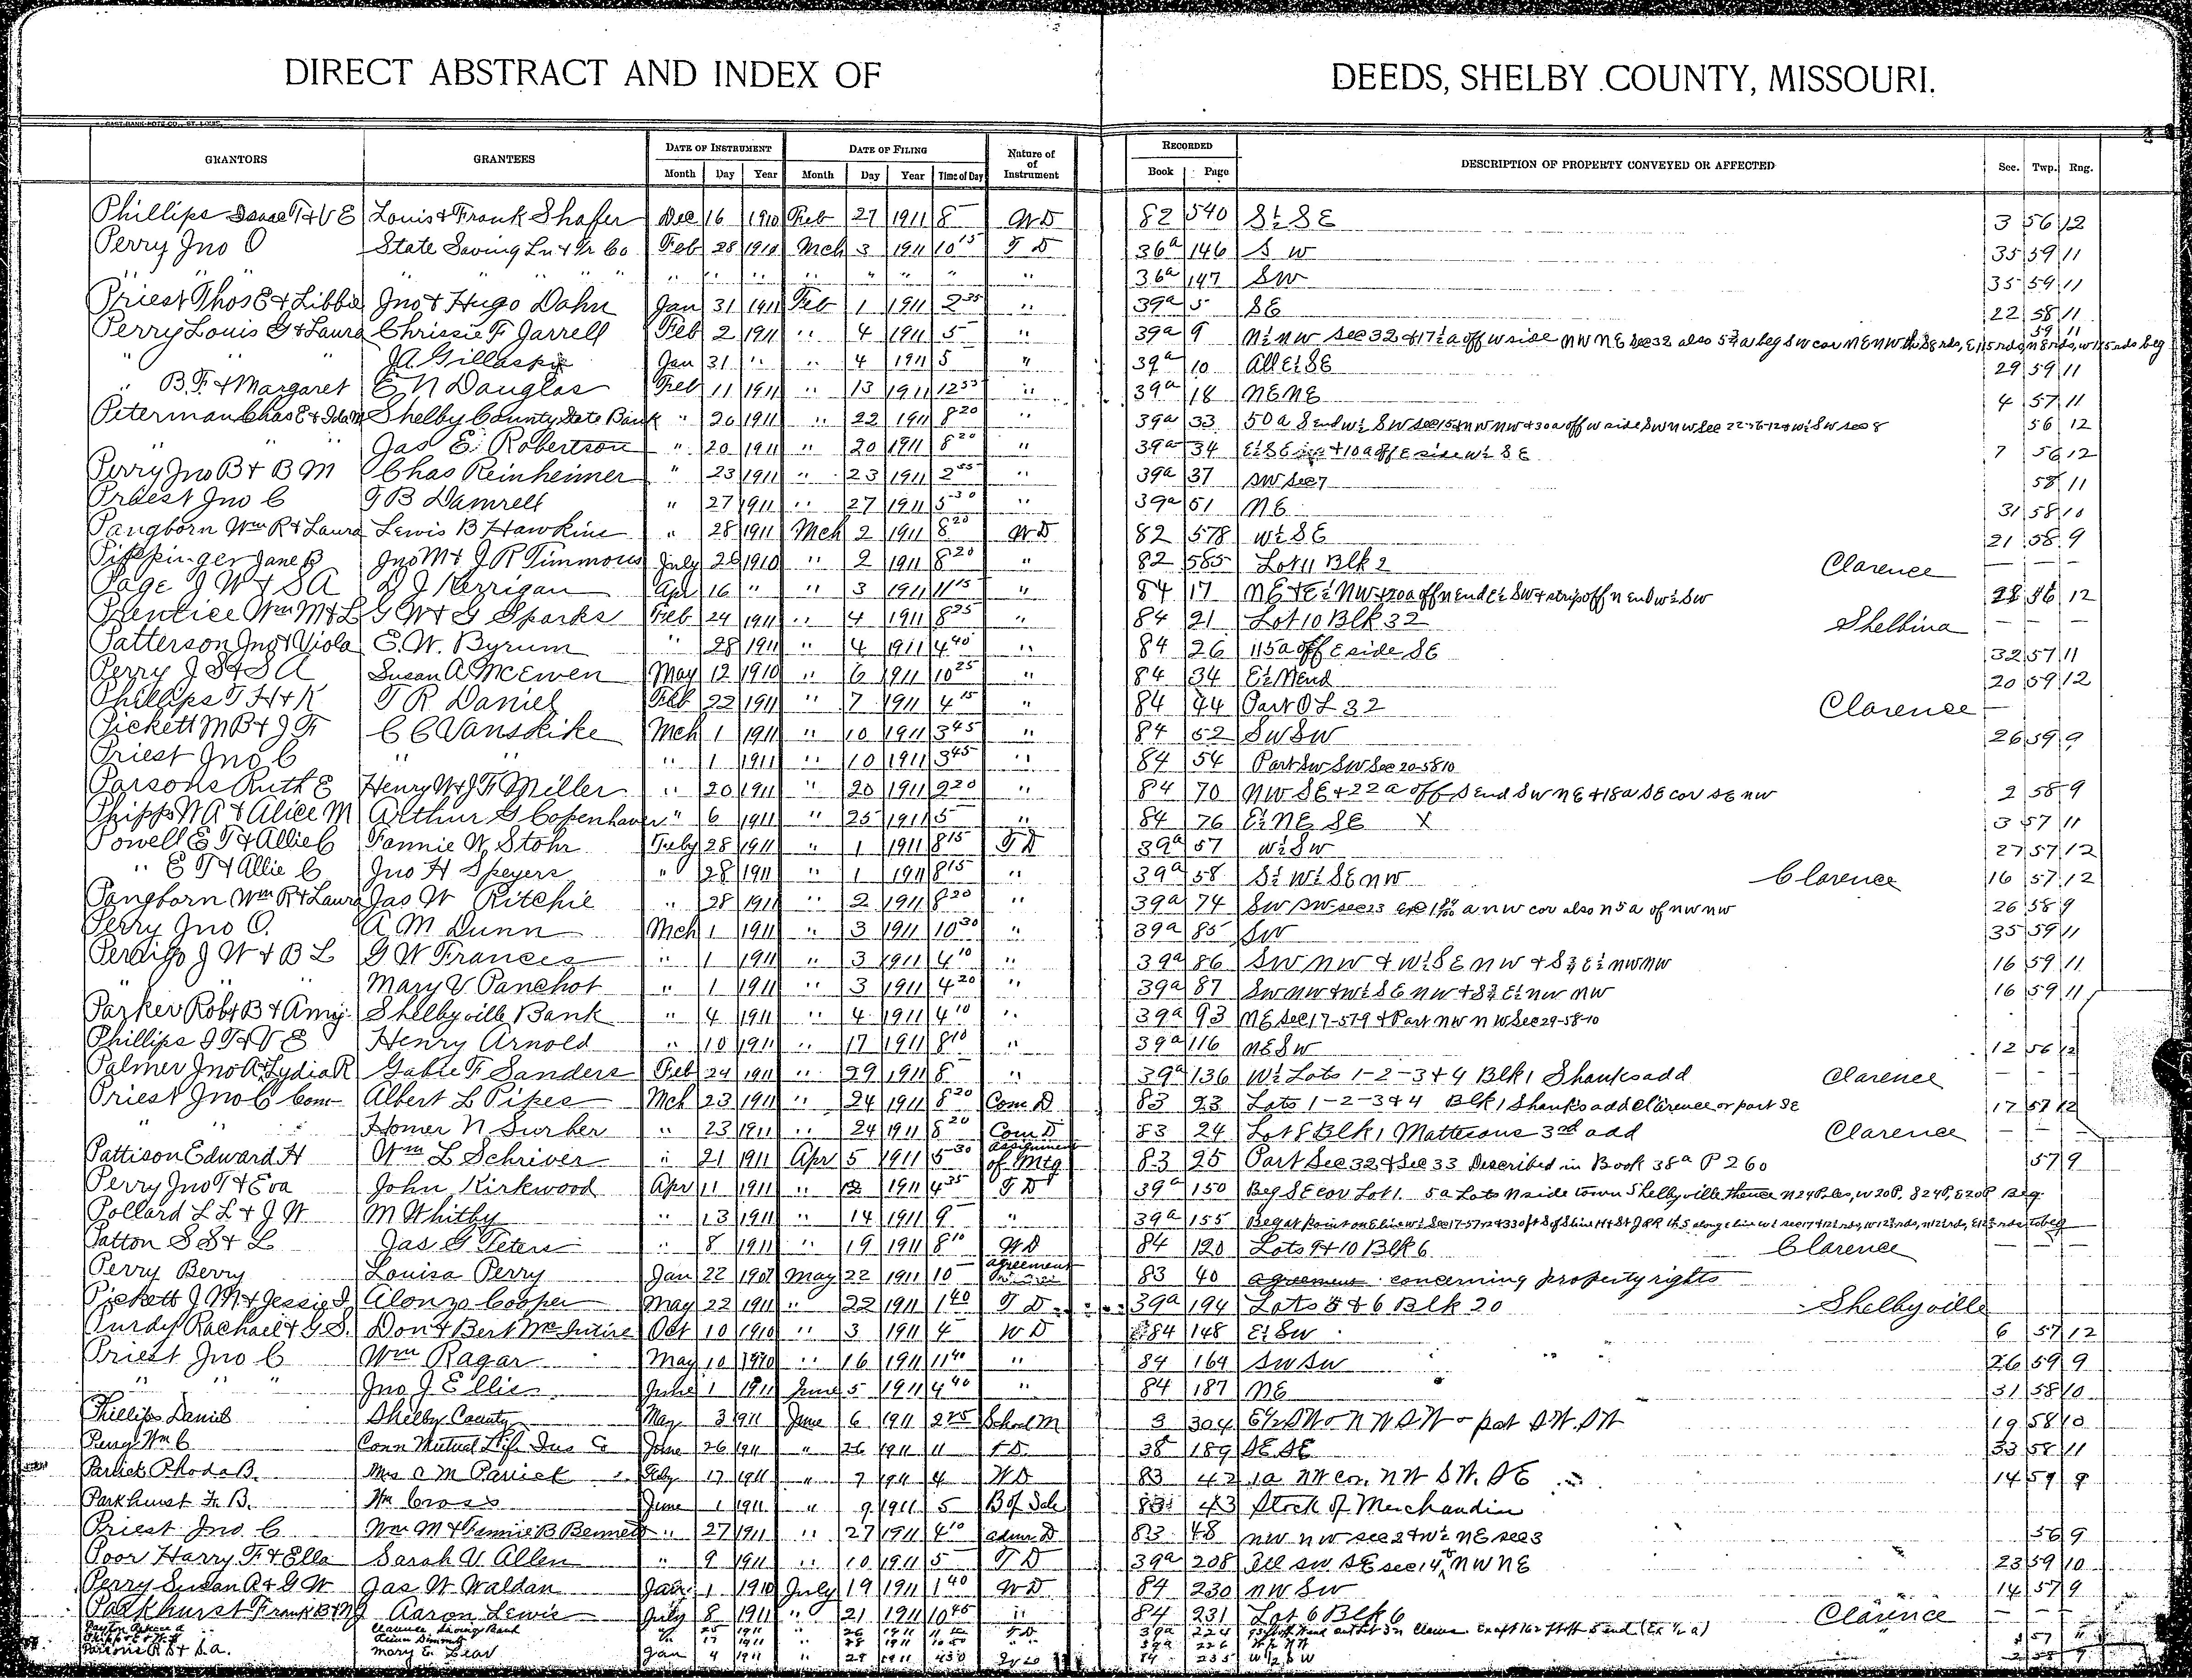 DIRECT ABSTRACT AND INDEX OF DEEDS, SHELBY COUNTY, MISSOURI.
GRANTORS GRANTEES DATE OF INSTRUMENT DATE OF FILING Nature of of Instrument RECORDED DESCRIPTION OF PROPERTY CONVEYED OR AFFECTED Sec. Twp. Rng.
Month Day Year Month Day Year Time of Day Book Page
Phillips Isaac T & V E Louis & Frank Shafer Dec 16 1910 Feb 27 1911 8 W D 82 540 S½ SE 3 56 12
Perry Jno O State Saving Ln & Tr Co Feb 28 1910 Mch 3 1911 10 15 T D 36a 146 S W 35 59 11
" " " " " " " " " " " " 36a 147 SW 35 59 11
Priest Thos E & Libbie Jno & Hugo Dahn Jan 31 1911 Feb 1 1911 2 35 " 39a 5 SE 22 58 11
Perry Louis G & Laura Chrissie F Jarrell Feb 2 1911 " 4 1911 5 " 39a 9 N½ NW Sec 32 & 17½ a off W side NW NE Sec 32 also 59 11
" " " J A Gillaspie Jan 31 " " 4 1911 5 " 39a 10 All E½ SE 29 59 11
" B. F. & Margaret E N Douglas Feb 11 1911 " 13 1911 12 53 " 39a 18 NE NE 4 57 11
Peterman Chas E & Ida M Shelby County State Bank " 20 1911 " 22 1911 8 20 " 39a 33 50 a S end W½ SW 56 12
" " Jas E. Robertson " 20 1911 " 20 1911 8 20 " 39a 34 E½ SE & 10 a off E side W½ SE 7 56 12
Perry Jno B & B M Chas Reinheimer " 23 1911 " 23 1911 2 55 " 39a 37 SW Sec 7 58 11
Priest Jno C T B Damrell " 27 1911 " 27 1911 5 30 " 39a 51 NE 31 58 10
Pangborn Wm R & Laura Lewis B Hawkins " 28 1911 Mch 2 1911 8 20 W D 82 578 W½ SE 21 58 9
Jane B Jno M & J R Timmons July 26 1910 " 2 1911 8 20 " 82 585 Lot 11 Blk 2 Clarence — —
Page J W & S A D J Kerrigan Apr 16 " " 3 1911 11 15 " 84 17 NE & E½ NW & 20 a off N End E½ SW & strip off N end W½ SW 28 56 12
Prentice Wm M & L G W & G Sparks Feb 24 1911 " 4 1911 8 25 " 84 21 Lot 10 Blk 32 Shelbina — —
Patterson Jno & Viola E. W. Byrum " 28 1911 " 4 1911 4 40 " 84 26 115 a off E side SE 32 57 11
Perry J S & S A Susan A McEwen May 12 1910 " 6 1911 10 25 " 84 34 E½ N End 20 59 12
Phillips T H & K T R Daniel Feb 22 1911 " 7 1911 4 15 " 84 44 Part O L 32 Clarence —
Pickett M B & J F C C Vanskike Mch 1 1911 " 10 1911 3 45 " 84 52 SW SW 26 59 9
Priest Jno C " " " 1 1911 " 10 1911 3 45 " 84 54 Part SW SW Sec 20-58 10
Parsons Ruth E Henry W & J F Miller " 20 1911 " 20 1911 9 20 " 84 70 NW SE & 22 a off S end SW NE & 18 a SE cor SE NW 2 58 9
Phipps W A & Alice M Arthur G Copenhaver " 6 1911 " 25 1911 5 " 84 76 E½ NE SE X 3 57 11
Powell E T & Allie C Fannie W Stohr Feby 28 1911 " 1 1911 8 15 T D 39a 57 W½ SW 27 57 12
" E T & Allie C Jno H Speyers " 28 1911 " 1 1911 8 15 " 39a 58 S½ W½ SE NW Clarence 16 57 12
Pangborn Wm R & Laura Jas W Ritchie " 28 1911 " 2 1911 8 20 " 39a 74 SW SW Sec 23 a NW cor also N 5 a of NW NW 26 58 9
Perry Jno O. A M Dunn Mch 1 1911 " 3 1911 10 30 " 39a 85 SW 35 59 11
Perdigo J W & B L G W Frances " 1 1911 " 3 1911 4 10 " 39a 86 SW NW & W½ SE NW & S¾ E½ NW NW 16 59 11
" " Mary V Panchot " 1 1911 " 3 1911 4 20 " 39a 87 SW NW & W½ SE NW & S¾ E½ NW NW 16 59 11
Parker Robt B & Amy Shelbyville Bank " 4 1911 " 4 1911 4 10 " 39a 93 NE Sec 17-57-9 & Part NW NW Sec 29-58-10
Phillips I T & V E Henry Arnold " 10 1911 " 17 1911 8 10 " 39a 116 NE SW 12 56 12
Palmer Jno A & Lydia R Gable F Sanders Feb 24 1911 " 29 1911 8 " 39a 136 W½ Lots 1-2-3 & 4 Blk 1 Shanks add Clarence — —
Priest Jno C Com Albert L Pikes Mch 23 1911 " 24 1911 8 20 Com D 83 23 Lots 1-2-3 & 4 Blk 1 Shanks add Clarence or part SE 17 57 12
" " Homer N Surber " 23 1911 " 24 1911 8 20 Com D 83 24 Lot 8 Blk 1 Mattesons 3rd add Clarence — —
Pattison Edward H Wm L Schriver " 21 1911 Apr 5 1911 5 30 assignment of Mtg 83 25 Part Sec 32 & Sec 33 Described in Book 38a P 260 57 9
Perry Jno T & Eva John Kirkwood Apr 11 1911 " 12 1911 4 35 T D 39a 150 Beg SE cor Lot 1. 5 a Lots N side town Shelbyville thence N 24 Poles, W 20 P, S 24 P, E 20 P Beg
Pollard L L & J W M Whitby " 13 1911 " 14 1911 9 " 39a 155 Beg at point on E line W½ Sec 17-57-12
Patton S S & L Jas G Peters " 8 1911 " 19 1911 8 10 W D 84 120 Lots 9 & 10 Blk 6 Clarence — —
Perry Berry Louisa Perry Jan 22 1907 May 22 1911 10 agreement 83 40 agreement concerning property rights
Pickett J M & Jessie I Alonzo Cooper May 22 1911 " 22 1911 1 40 T D 39a 194 Lots 5 & 6 Blk 20 Shelbyville
Purdy Rachael & G. S. Don & Bert McIntire Oct 10 1910 " 3 1911 4 W D 84 148 E½ SW 6 57 12
Priest Jno C Wm Ragar May 10 1910 " 16 1911 11 40 " 84 164 SW SW 26 59 9
" " " Jno J Ellis June 1 1911 June 5 1911 4 40 " 84 187 NE 31 58 10
Phillips Daniel Shelby County May 3 1911 June 6 1911 School M 3 304 19 58 10
Wm C Conn Mutual Life Ins Co June 26 1911 " 26 1911 11 T D 38 189 SE SE 33 58 11
Parrick Rhoda B. Mrs C M Parrick 17 1911 " 7 1911 4 W D 83 42 1 a NW Cor. NW SW. SE 14 59 9
Parkhurst F. B. Wm Cross June 1 1911 " 9 1911 5 B of Sale 83 43 Stock of Merchandise
Priest Jno C Wm M & Fannie B Bennett " 27 1911 " 27 1911 4 10 admr D 83 48 NW NW Sec 2 & W½ NE Sec 3 56 9
Poor Harry F & Ella Sarah V Allen " 9 1911 " 10 1911 5 T D 39a 208 All SW SE Sec 14 & NW NE 23 59 10
Perry Susan A & G W Jas W Waldan Jan 1 1910 July 19 1911 1 40 W D 84 230 NW SW 14 57 9
Parkhurst Frank B & N J Aaron Lewis July 8 1911 " 21 1911 10 45 " 84 231 Lot 6 Blk 6 Clarence — —
Clarence Savings Bank 1911 1911 39a 224
1911 1911 39a 226
Parsons R S & S. A. Mary E Lear Jan 4 1911 " 28 1911 4 30 84 235 W½ SW